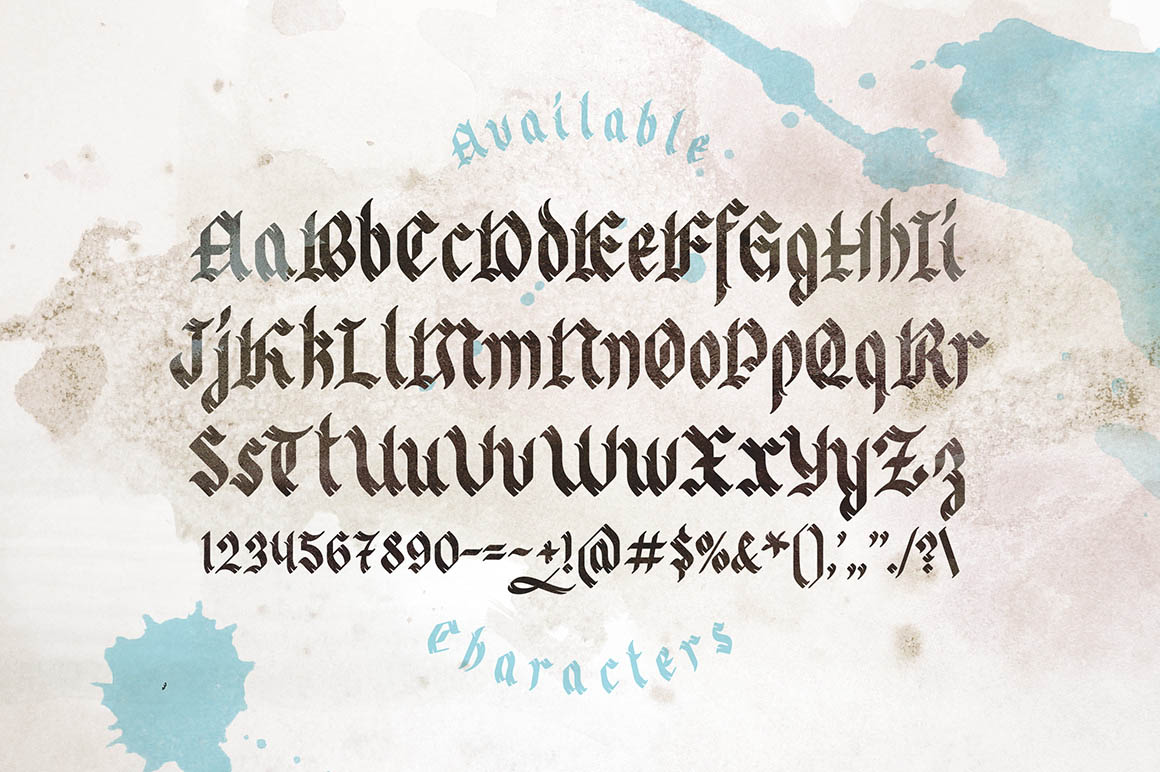 Available
AaBbCcDdEeFfGgHhIi
JjKkLlMmNnOoPpQqRr
SsTtUuVvWwXxYyZz
1234567890-=~+!@#$%&*();',,"./?\
Characters